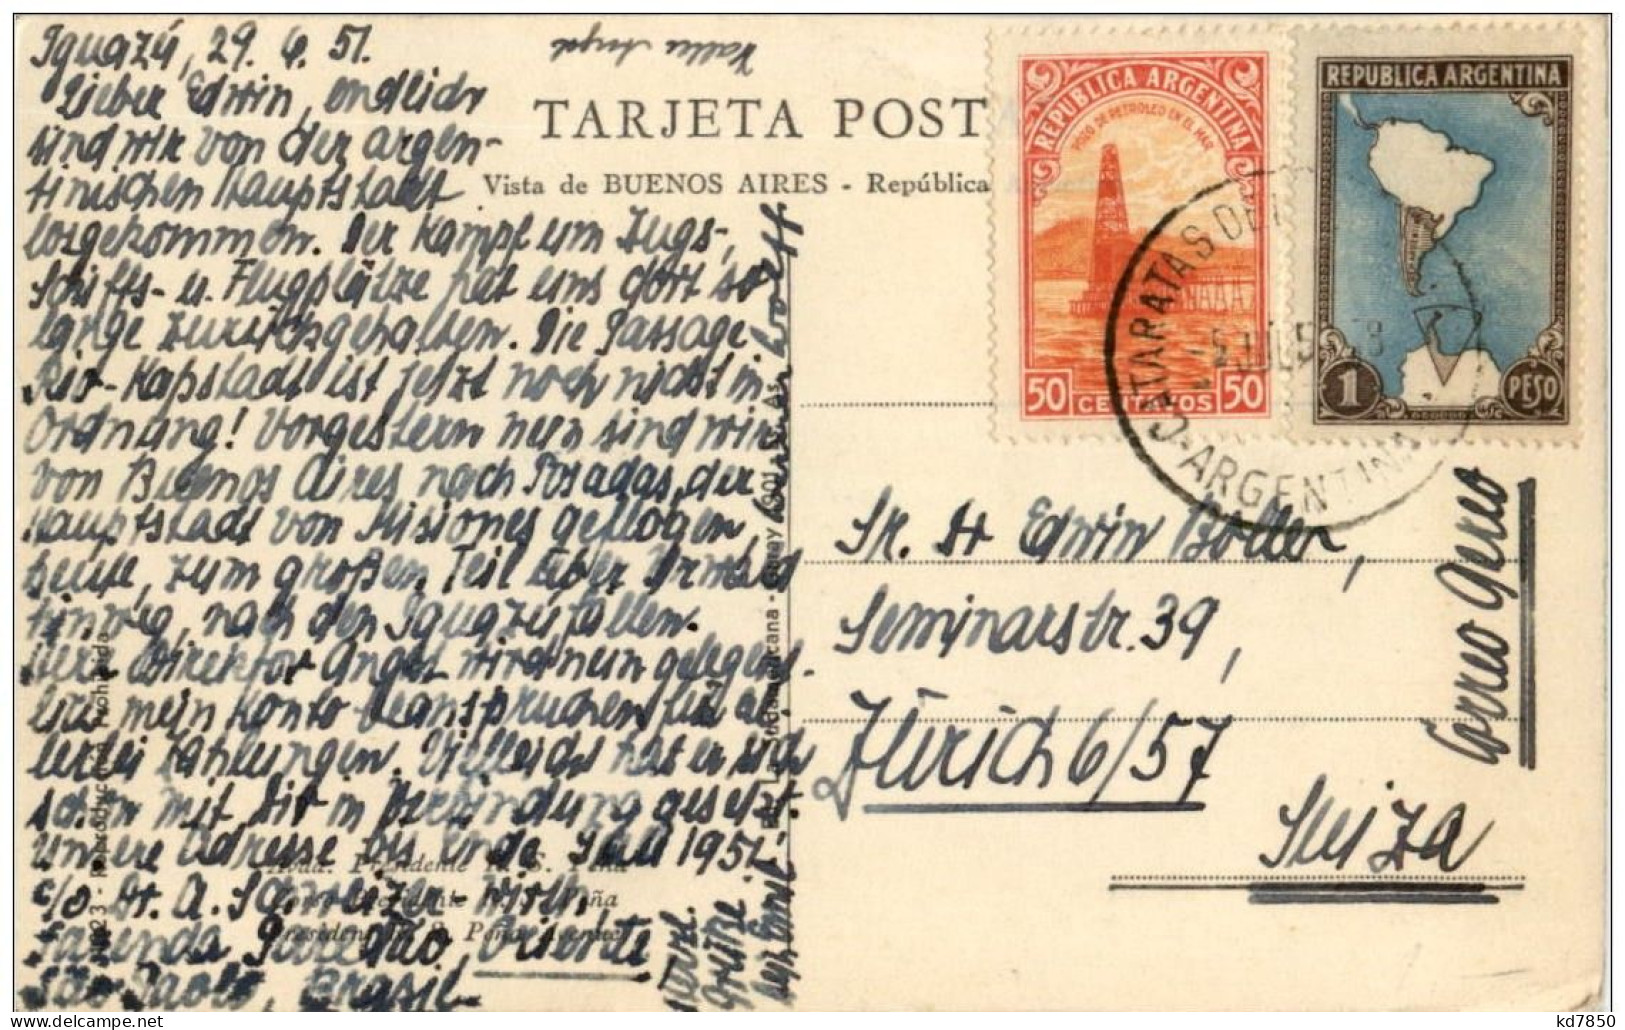 Iguazú, 29. 6. 51.
Lieber Edwin, endlich
sind wir von der argen-
tinischen Hauptstadt
losgekommen. Der Kampf um Zugs-,
Schiffs- u. Flugplätze hat uns dort so
lange zurückgehalten. Die Passage
Rio-Kapstadt ist jetzt noch nicht in
Ordnung! Vorgestern nun sind wir
von Buenos Aires nach Posadas, der
Hauptstadt von Misiones geflogen,
heute, zum großen Teil über Urwald
hinweg, nach den Iguazúfällen.
Herr Direktor Angst wird nun gelegent-
lich mein Konto beanspruchen für al-
lerlei Zahlungen. Vielleicht hat er sich
schon mit Dir in Verbindung gesetzt.
Unsere Adresse bis Ende Juli 1951:
c/o Dr. A. Schweizer Wirth,
Fazenda Oriente
São Paolo, Brasil
Herzl.
Grüße
TARJETA POST
Vista de BUENOS AIRES - República
Avda. Presidente R. S. Peña
Presidente R. S. Peña Avenue
REPUBLICA ARGENTINA
POZO DE PETROLEO EN EL MAR
50 CENTAVOS 50
REPUBLICA ARGENTINA
1 PESO
CATARATAS DEL
ARGENTINA
Sr. H Edwin Boller,
Seminarstr. 39,
Zürich 6/57
Suiza
Correo Aereo
kd7850